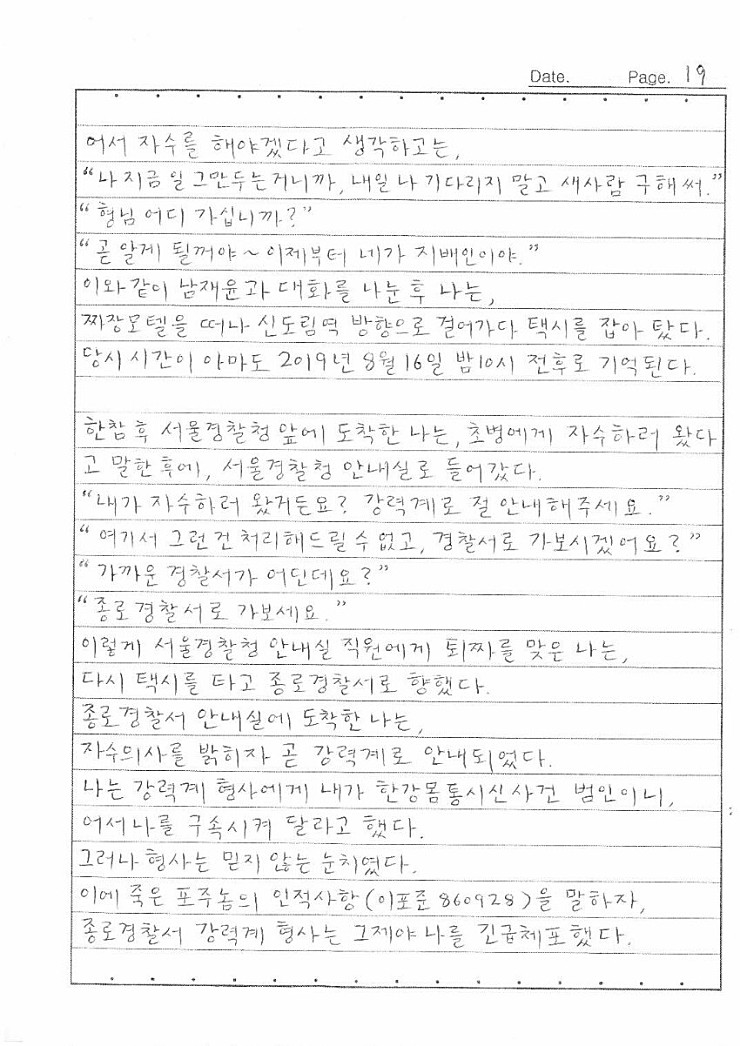 Date. Page. 19
어서 자수를 해야겠다고 생각하고는,
"나 지금 일 그만두는거니까, 내일 나 기다리지 말고 새사람 구해 써."
"형님 어디 가십니까?"
"곧 알게 될꺼야~ 이제부터 네가 지배인이야."
이와같이 남재윤과 대화를 나눈 후 나는,
짜장모텔을 떠나 신도림역 방향으로 걸어가다 택시를 잡아 탔다.
당시 시간이 아마도 2019년 8월 16일 밤10시 전후로 기억된다.
한참 후 서울경찰청 앞에 도착한 나는, 초병에게 자수하러 왔다
고 말한 후에, 서울경찰청 안내실로 들어갔다.
"내가 자수하러 왔거든요? 강력계로 절 안내해주세요."
"여기서 그런 건 처리해드릴 수 없고, 경찰서로 가보시겠어요?"
"가까운 경찰서가 어딘데요?"
"종로경찰서로 가보세요."
이렇게 서울경찰청 안내실 직원에게 퇴짜를 맞은 나는,
다시 택시를 타고 종로경찰서로 향했다.
종로경찰서 안내실에 도착한 나는,
자수의사를 밝히자 곧 강력계로 안내되었다.
나는 강력계 형사에게 내가 한강몸통시신사건 범인이니,
어서 나를 구속시켜 달라고 했다.
그러나 형사는 믿지 않는 눈치였다.
이에 죽은 포주놈의 인적사항(이포준 860928)을 말하자,
종로경찰서 강력계 형사는 그제야 나를 긴급체포했다.